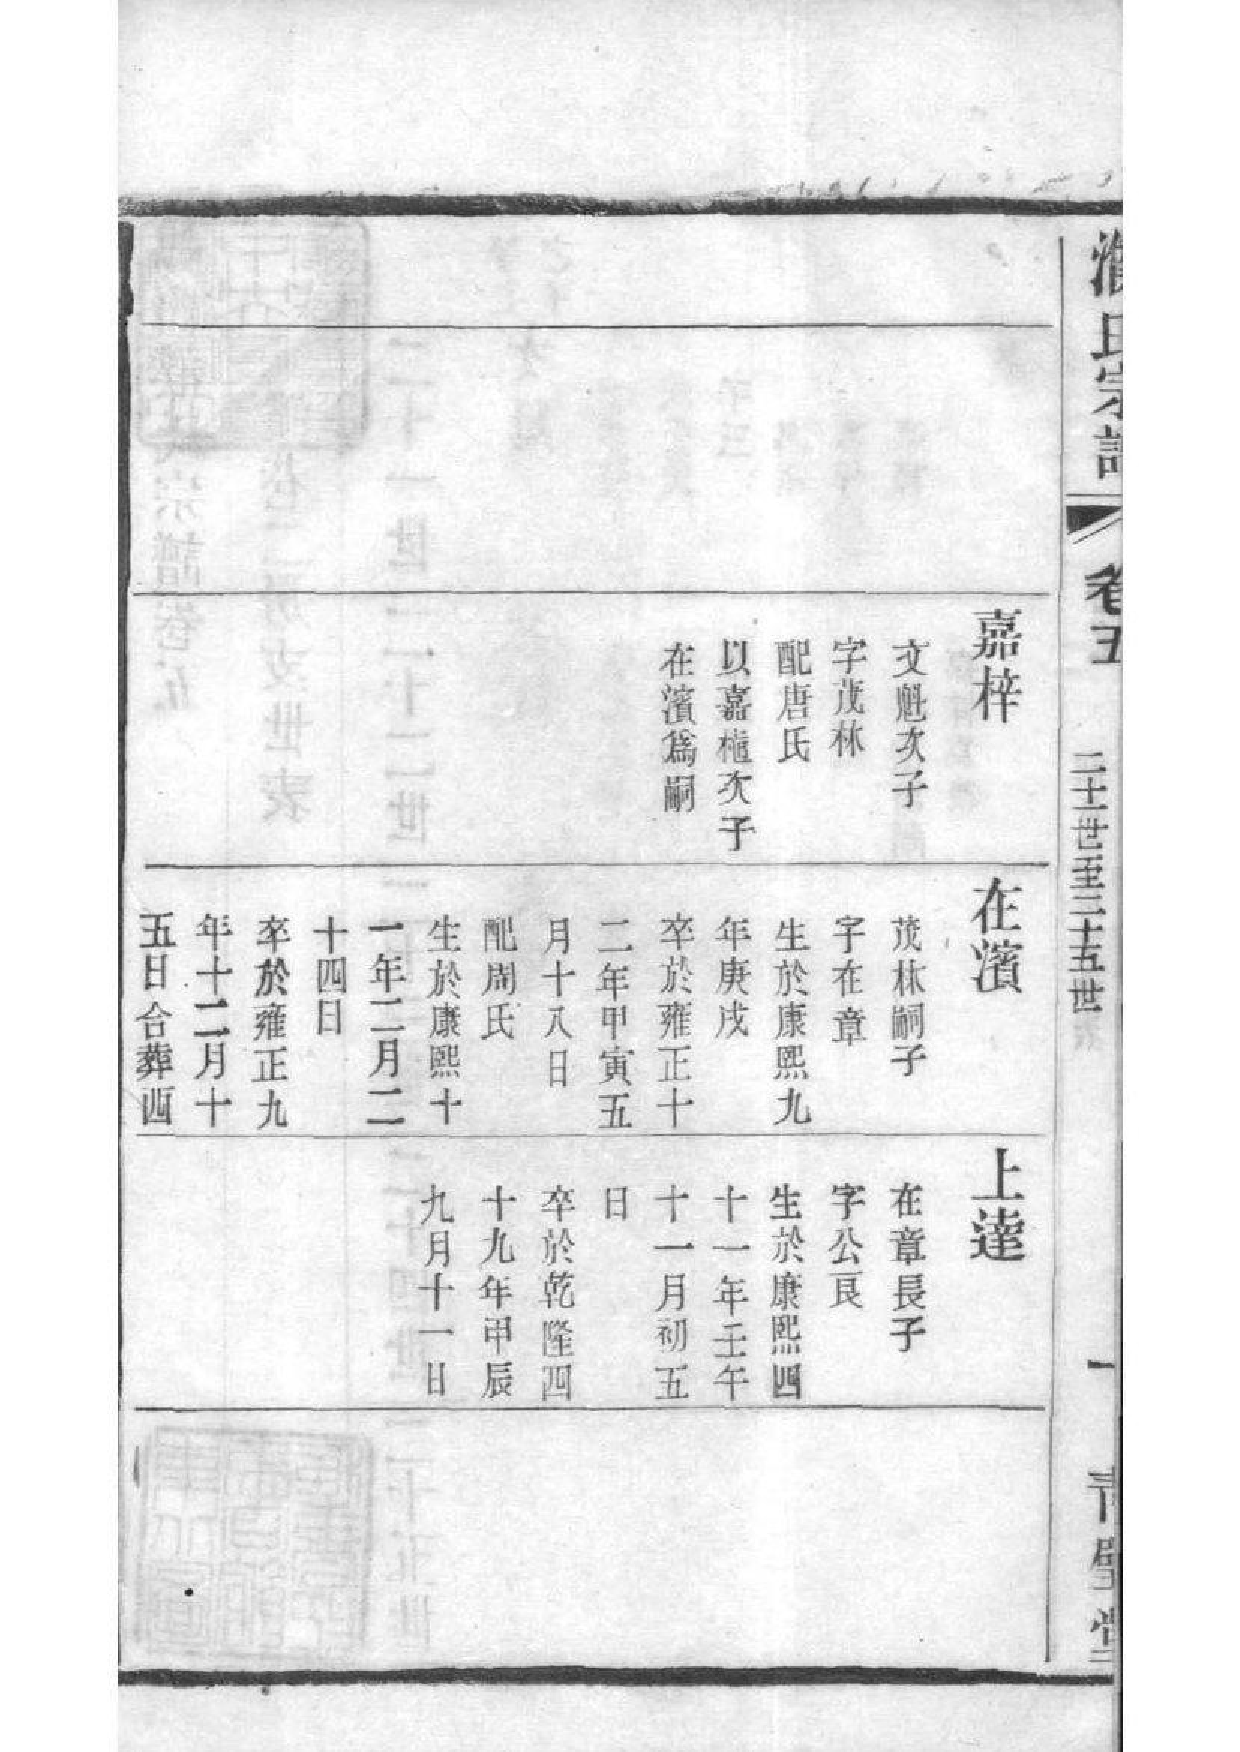 氏宗譜
卷五
二十一世至二十五世
一
青壁堂
嘉梓
文魁次子
字茂林
配唐氏
以嘉樁次子
在濱爲嗣
在濱
茂林嗣子
字在章
生於康熙九
年庚戌
卒於雍正十
二年甲寅五
月十八日
配周氏
生於康熙十
一年二月二
十四日
卒於雍正九
年十二月十
五日合葬西
上達
在章長子
字公艮
生於康熙四
十一年壬午
十一月初五
日
卒於乾隆四
十九年甲辰
九月十一日